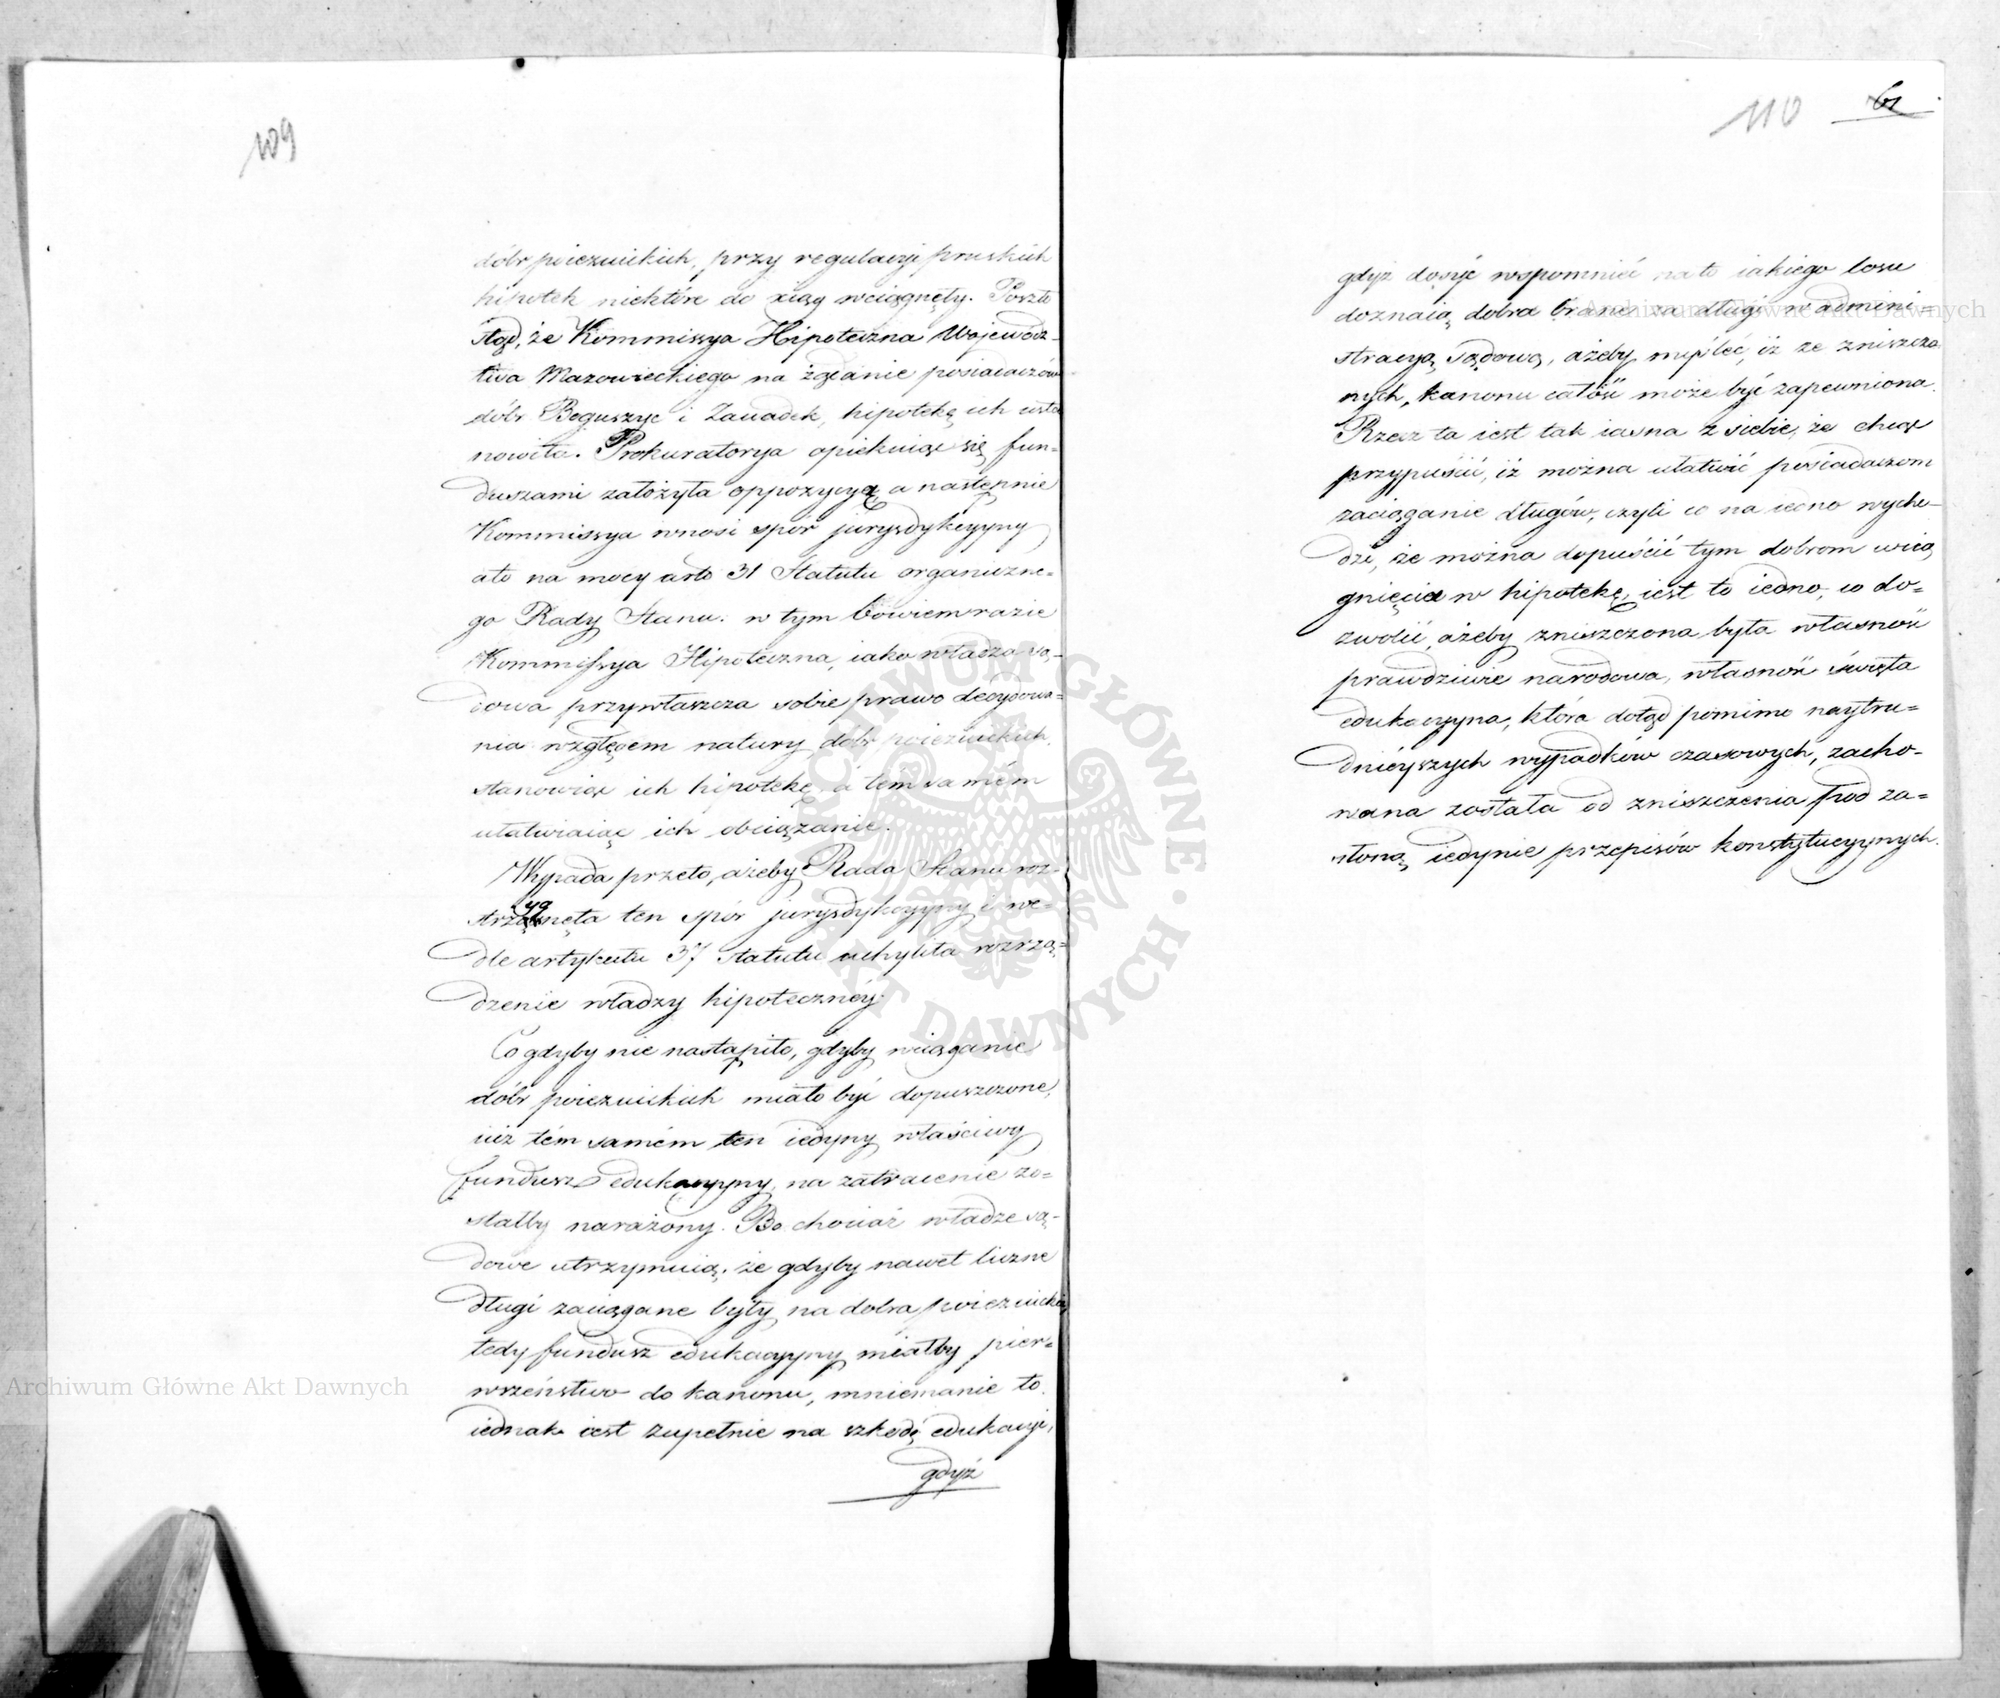 109
dóbr poiezuickich, przy regulacyi pruskich
hipotek niektóre do xiąg wciągnęły. Poszło
stąd, że Kommissya Hipoteczna Wojewódz-
twa Mazowieckiego na żądanie posiadaczów
dóbr Boguszyc i Zawadek, hipotekę ich usta
nowiła. Prokuratorya opiekuiąc się fun-
duszami założyła oppozycyą, a następnie
Kommissya wnosi spór jurysdykcyyny
a to na mocy arto 31 Statutu organiczne-
go Rady Stanu. w tym bowiem razie
Kommissya Hipoteczna, iako władza są-
dowa przywłaszcza sobie prawo decydowa-
nia względem natury dóbr poiezuickich,
stanowiąc ich hipotekę, a tém samém
ułatwiaiąc ich obciążanie.
Wypada przeto, ażeby Rada Stanu roz-
strzygnęła ten spór jurysdykcyyny i we-
dle artykułu 37 Statutu uchyliła rozrzą-
dzenie władzy hipotecznéy.
Co gdyby nie nastąpiło, gdyby wciąganie
dóbr poiezuickich miało być dopuszczone,
iuż tém samém ten iedyny właściwy
fundusz edukacyyny, na zatracenie zo-
stałby narażony. Bo chociaż władze są-
dowe utrzymuią, że gdyby nawet liczne
długi zaciągane były na dobra poiezuickie,
tedy fundusz edukacyyny miałby pier-
wszeństwo do kanonu, mniemanie to
iednak iest zupełnie na szkodę edukacyi,
gdyż
110 61
gdyż dosyć wspomnieć na to iakiego losu
doznaią dobra brane za długi w admini-
stracyą sądową, ażeby myśleć, iż ze zniszczo
nych, kanonu całość może być zapewniona.
Rzecz ta iest tak iasna z siebie, że chcąc
przypuścić, iż można ułatwić posiadaczom
zaciąganie długów, czyli co na iedno wycho-
dzi, że można dopuścić tym dobrom wcią
gnięcia w hipotekę, iest to iedno, co do-
zwolić, ażeby zniszczona była własność
prawdziwie narodowa, własność święta
edukacyyna, która dotąd pomimo naytru-
dnieyszych wypadków czasowych, zacho-
wana została od zniszczenia pod za-
słoną iedynie przepisów konstytucyynych.
Archiwum Główne Akt Dawnych
Archiwum Główne Akt Dawnych
ARCHIWUM GŁÓWNE AKT DAWNYCH